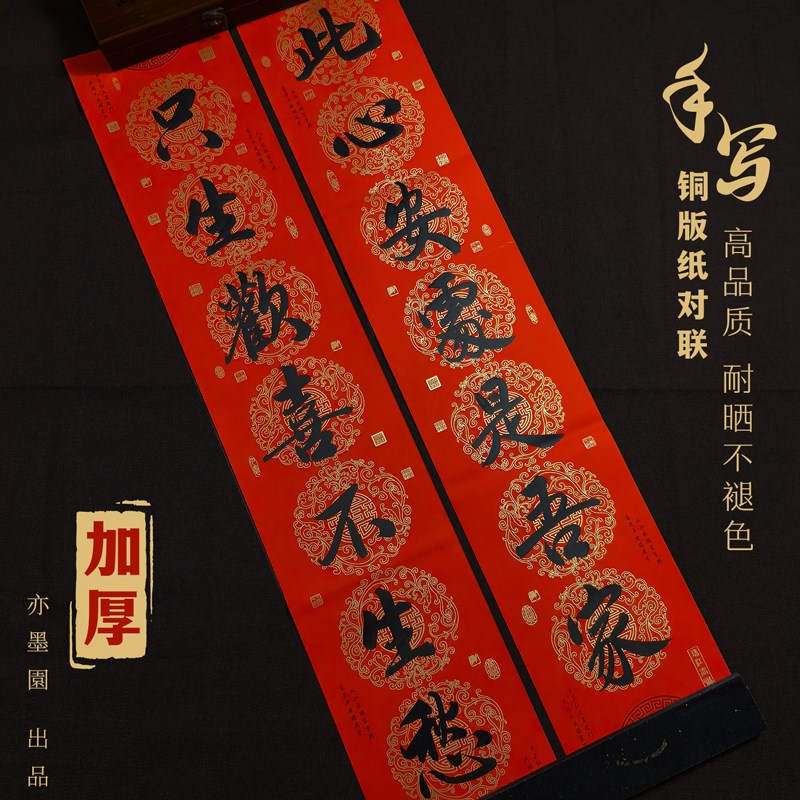 此心安處是吾家
只生歡喜不生愁
手写
铜版纸对联
高品质 耐晒不褪色
加厚
亦墨園 出品